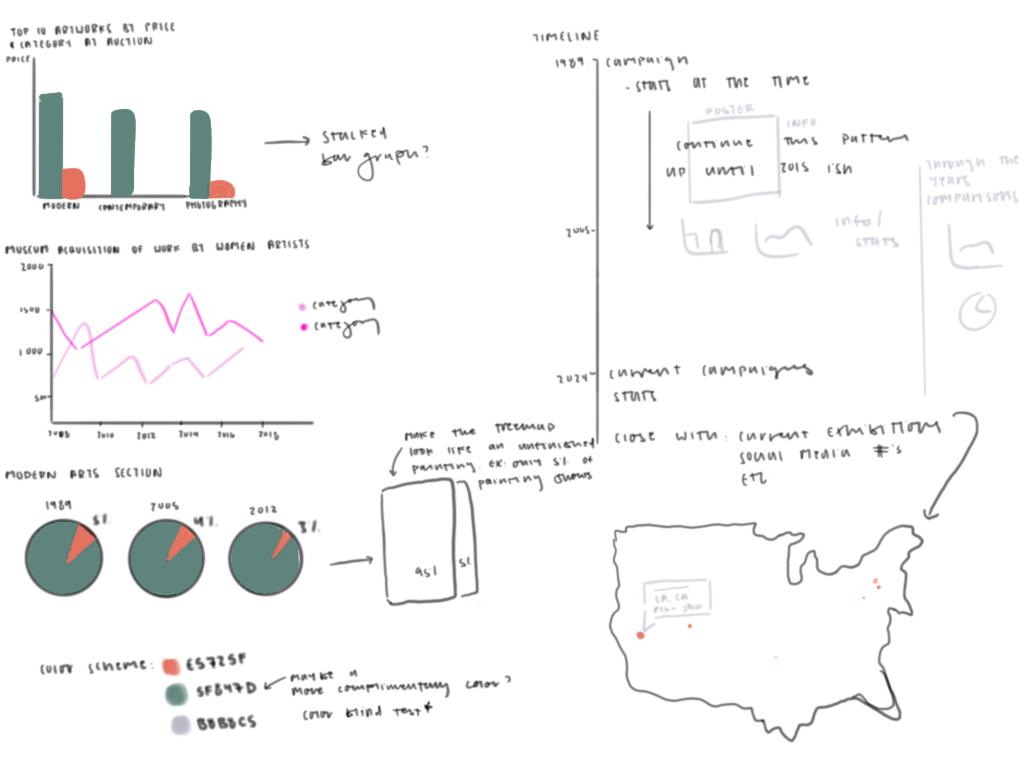 TOP 10 ARTWORKS BY PRICE
& CATEGORY AT AUCTION
PRICE
MODERN
CONTEMPORARY
PHOTOGRAPHY
stacked
bar graph?
MUSEUM ACQUISITION OF WORK BY WOMEN ARTISTS
2000
1500
1000
500
2008
2010
2012
2014
2016
2018
category
category
MODERN ARTS SECTION
1989
5%
2005
4%
2012
3%
Make the treemap
look like an unfinished
painting. ex: only 5% of
painting shows
95%
5%
color scheme:
E5725F
5F847D
BBBBCS
maybe a
more complimentary color?
color blind test*
TIMELINE
1989
campaign
- stats at the time
POSTER
INFO
continue this pattern
up until 2015 ish
2005
info/
stats
through the
years
comparisons
2024
current campaigns
stats
close with: current exhibitions
social media #'s
etc.
LA, CA